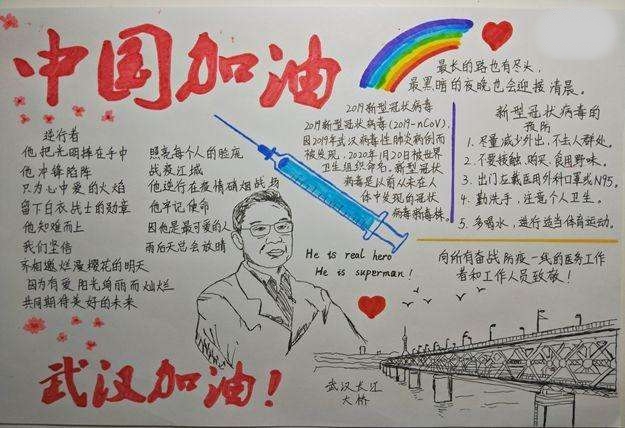 中国加油
逆行者
他把光明捧在手中
他冲锋陷阵
只为心中爱的火焰
留下白衣战士的勋章
他知难而上
我们坚信
齐相邀烂漫樱花的明天
因为有爱 阳光绮丽而灿烂
共同期待美好的未来
照亮每个人的脸庞
战疫江城
他逆行在疫情硝烟战场
他牢记使命
因他是最可爱的人
雨后天总会放晴
2019新型冠状病毒
2019新型冠状病毒(2019-nCoV),
因2019年武汉病毒性肺炎病例而
被发现,2020年1月20日被世界
卫生组织命名。新型冠状
病毒是以前从未在人
体中发现的冠状
病毒新毒株。
He is real hero
He is superman!
最长的路也有尽头,
最黑暗的夜晚也会迎接清晨。
新型冠状病毒的
预防
1. 尽量减少外出,不去人群处。
2. 不要接触、购买、食用野味。
3. 出门佩戴医用外科口罩或N95。
4. 勤洗手,注意个人卫生。
5. 多喝水,进行适当体育运动。
向所有奋战防疫一线的医务工作
者和工作人员致敬!
武汉长江
大桥
武汉加油!